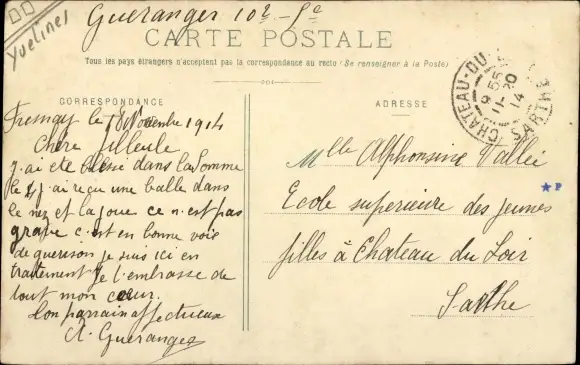 Yvelines
Gueranger 102 - 5e
CARTE POSTALE
Tous les pays étrangers n'acceptent pas la correspondance au recto (Se renseigner à la Poste)
CORRESPONDANCE
ADRESSE
Fresnay le 18 Novembre 1914
Chère filleule
j.ai eté blessé dans la Somme
le j.ai reçu une balle dans
le nez et la joue ce n.est pas
grave c.est en bonne voie
de guerison je suis ici en
traitement je t.embrasse de
tout mon cœur.
ton parrain affectueux
A. Gueranger
Mlle Alphonsine Vallée
Ecole superieure des jeunes
filles à Chateau du Loir
Sarthe
CHATEAU-DU
SARTHE
9 55
11-20
14
★ P